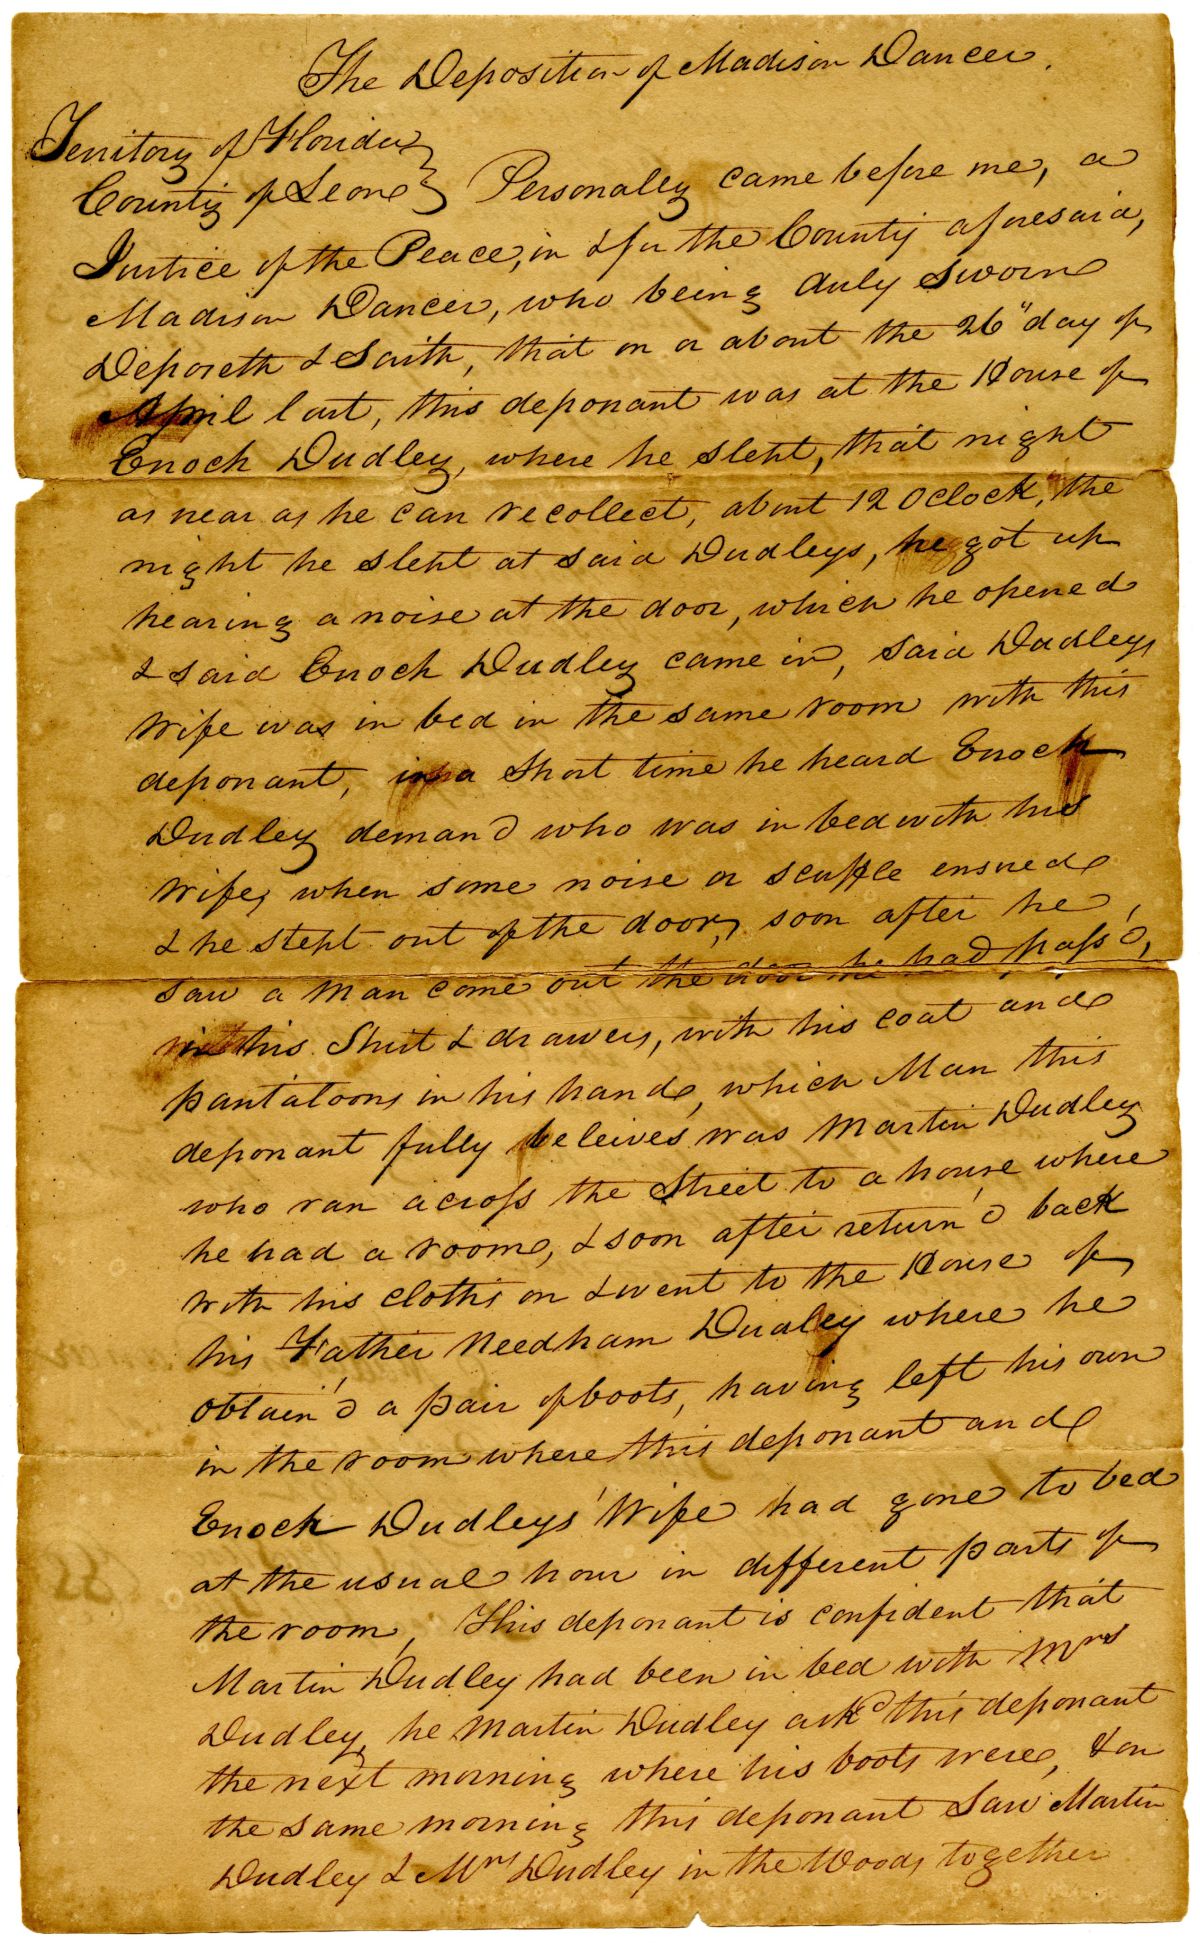 The Deposition of Madison Dancer.
Territory of Florida
County of Leon } Personaley came before me, a
Justice of the Peace, in & for the County aforesaid,
Madison Dancer, who being duly Sworn
Deposeth & Saith, that on or about the 26" day of
April last, this deponant was at the House of
Enoch Dudley, where he slept, that night
as near as he can recollect, about 12 Oclock, the
night he slept at said Dudleys, he got up
hearing a noise at the door, which he opened
& said Enoch Dudley came in, said Dudleys
Wife was in bed in the same room with this
deponant, in a Short time he heard Enoch
Dudley demand who was in bed with his
Wife, when some noise or scuffle ensued
& he stept out of the door, soon after he
saw a man come out the door he had pass'd,
with his Shirt & drawers, with his coat and
pantaloons in his hand, which Man this
deponant fully beleives was Martin Dudley
who ran across the Street to a house where
he had a room, & soon after return'd back
with his cloths on & went to the House of
his Father Needham Dudley where he
obtain'd a pair of boots, having left his own
in the room where this deponant and
Enoch Dudleys' Wife had gone to bed
at the usual hour in different parts of
the room, This deponant is confident that
Martin Dudley had been in bed with Mrs
Dudley, he Martin Dudley askd this deponant
the next morning where his boots were, & on
the same morning this deponant Saw Martin
Dudley & Mrs Dudley in the Woods together